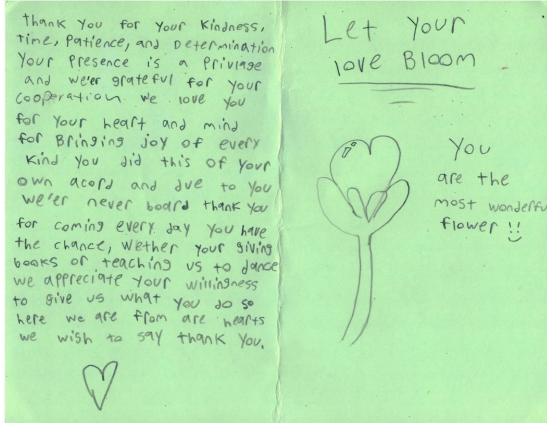 thank you for your kindness,
time, patience, and determination
your presence is a privlage
and we'er grateful for your
cooperation. we love you
for your heart and mind
for Bringing joy of every
kind you did this of your
own acord and due to you
we'er never board thank you
for coming every day you have
the chance, wether your giving
books or teaching us to dance
we appreciate your willingness
to give us what you do so
here we are from are hearts
we wish to say thank you.
Let your
love Bloom
You
are the
most wonderful
flower !!